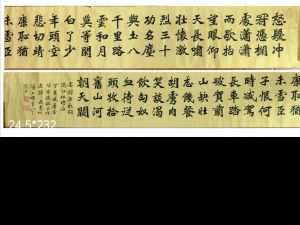 怒髮衝
冠憑欄
處瀟瀟
雨歇抬
望眼仰
天長嘯
壯懷激
烈三十
功名塵
千里路
雲和月
莫等閒
白了少
年頭空
悲切靖
康恥猶
未雪臣
康恥猶
未雪臣
子恨何
時滅駕
長車踏
破賀蘭
山缺壯
志飢餐
胡虜肉
笑談渴
飲匈奴
血待從
頭收拾
舊山河
朝天闕
24.5*232